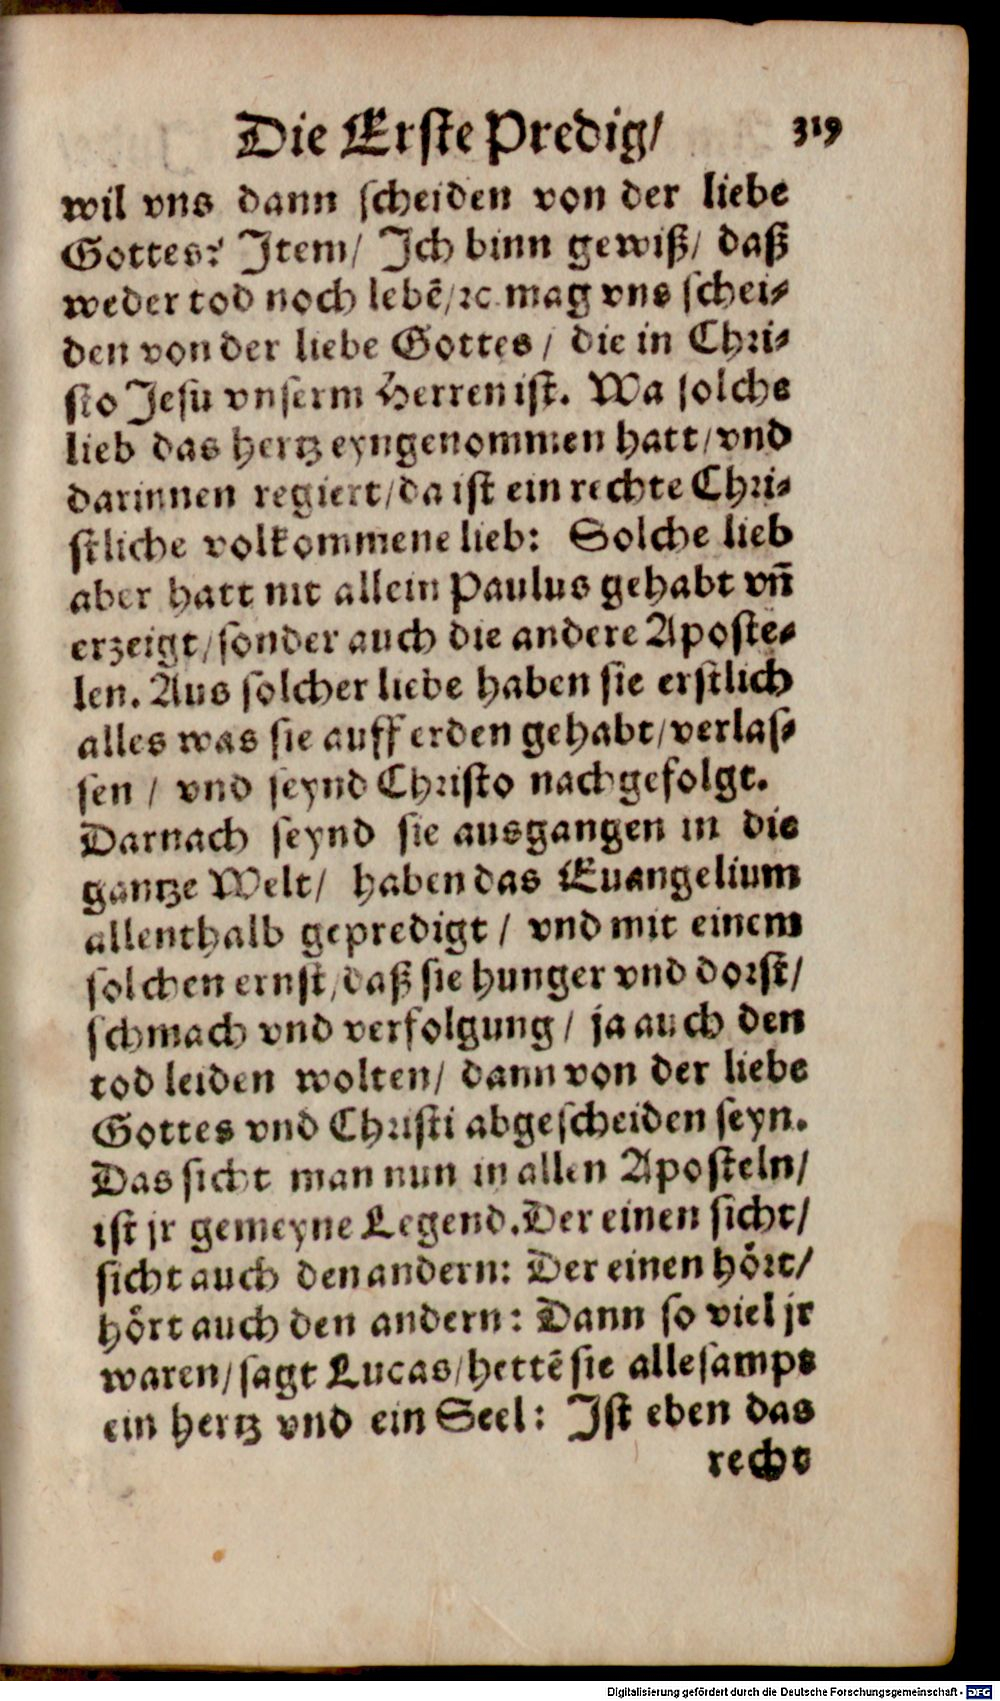 Die Erste Predig/ 319
wil vns dann scheiden von der liebe
Gottes? Item/ Ich binn gewiß/ daß
weder tod noch lebẽ/ ꝛc. mag vns schei⸗
den von der liebe Gottes / die in Chri⸗
sto Jesu vnserm Herren ist. Wa solche
lieb das hertz eyngenommen hatt/ vnd
darinnen regiert/ da ist ein rechte Chri⸗
stliche volkommene lieb: Solche lieb
aber hatt nit allein Paulus gehabt vñ
erzeigt/ sonder auch die andere Aposte⸗
len. Aus solcher liebe haben sie erstlich
alles was sie auff erden gehabt/ verlas⸗
sen / vnd seynd Christo nachgefolgt.
Darnach seynd sie ausgangen in die
gantze Welt/ haben das Euangelium
allenthalb gepredigt / vnd mit einem
solchen ernst/ daß sie hunger vnd dorst/
schmach vnd verfolgung / ja auch den
tod leiden wolten/ dann von der liebe
Gottes vnd Christi abgescheiden seyn.
Das sicht man nun in allen Aposteln/
ist jr gemeyne Legend. Der einen sicht/
sicht auch den andern: Der einen hört/
hört auch den andern: Dann so viel jr
waren/ sagt Lucas/ hettẽ sie allesamps
ein hertz vnd ein Seel: Ist eben das
recht
Digitalisierung gefördert durch die Deutsche Forschungsgemeinschaft - DFG